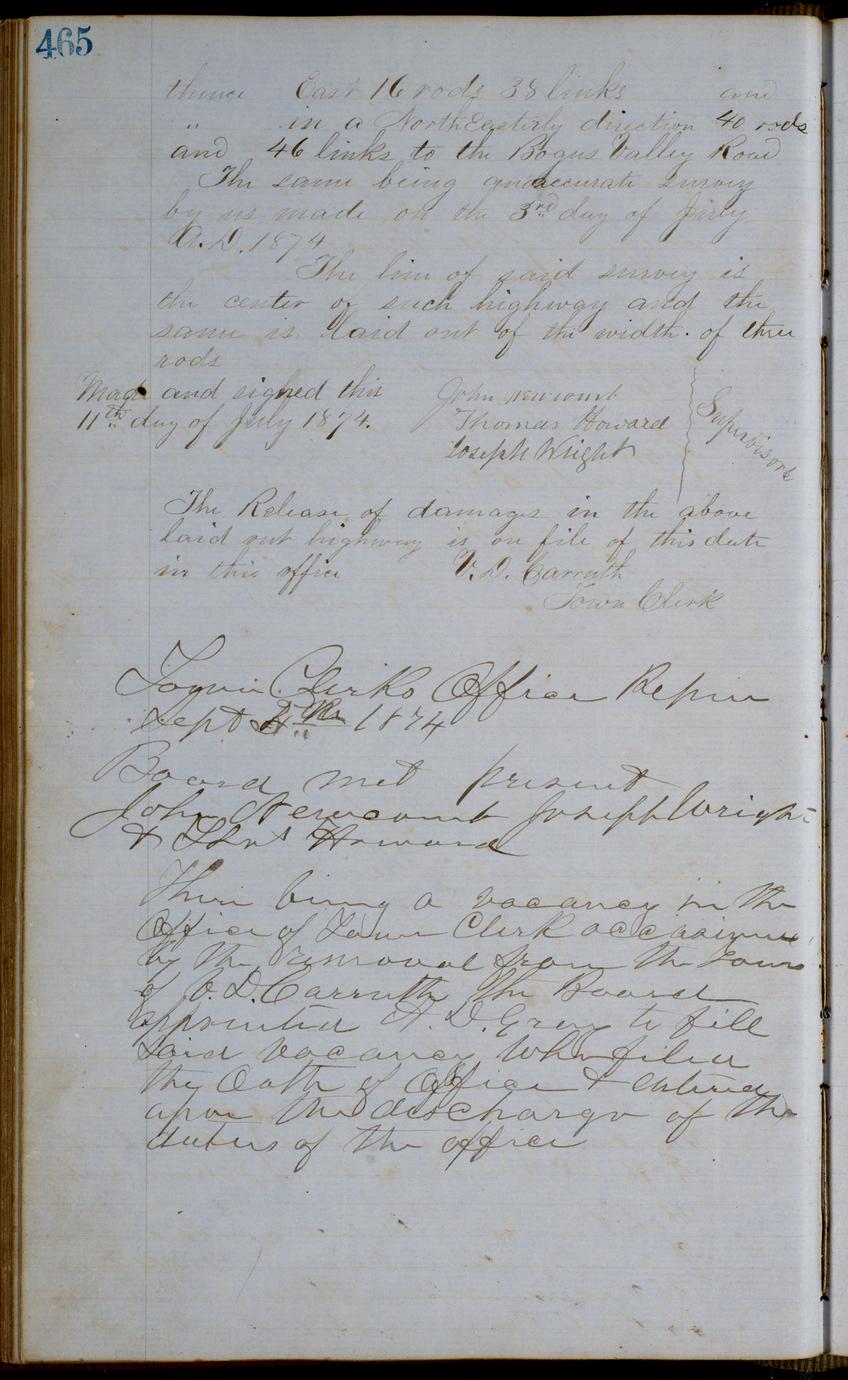 465
thence East 16 rods 38 links and
" in a North Easterly direction 40 rods
and 46 links to the Bogus Valley Road
The same being an accurate survey
by us made on the 3rd day of July
A.D. 1874
The line of said survey is
the center of such highway and the
same is laid out of the width of three
rods
Made and signed this
11th day of July 1874.
John Newcomb
Thomas Howard
Joseph Wright
Supervisors
The Release of damages in the above
laid out highway is on file of this date
in this office V. D. Carruth
Town Clerk
Town Clerks Office Repin
Sept 4th 1874
Board met present
John Newcomb Joseph Wright
& Thos Howard
There being a vacancy in the
Office of Town Clerk occasioned
by the removal from the Town
of V. D. Carruth the Board
appointed A. D. Gray to fill
said vacancy who filed
the Oath of Office & entered
upon the discharge of the
duties of the office